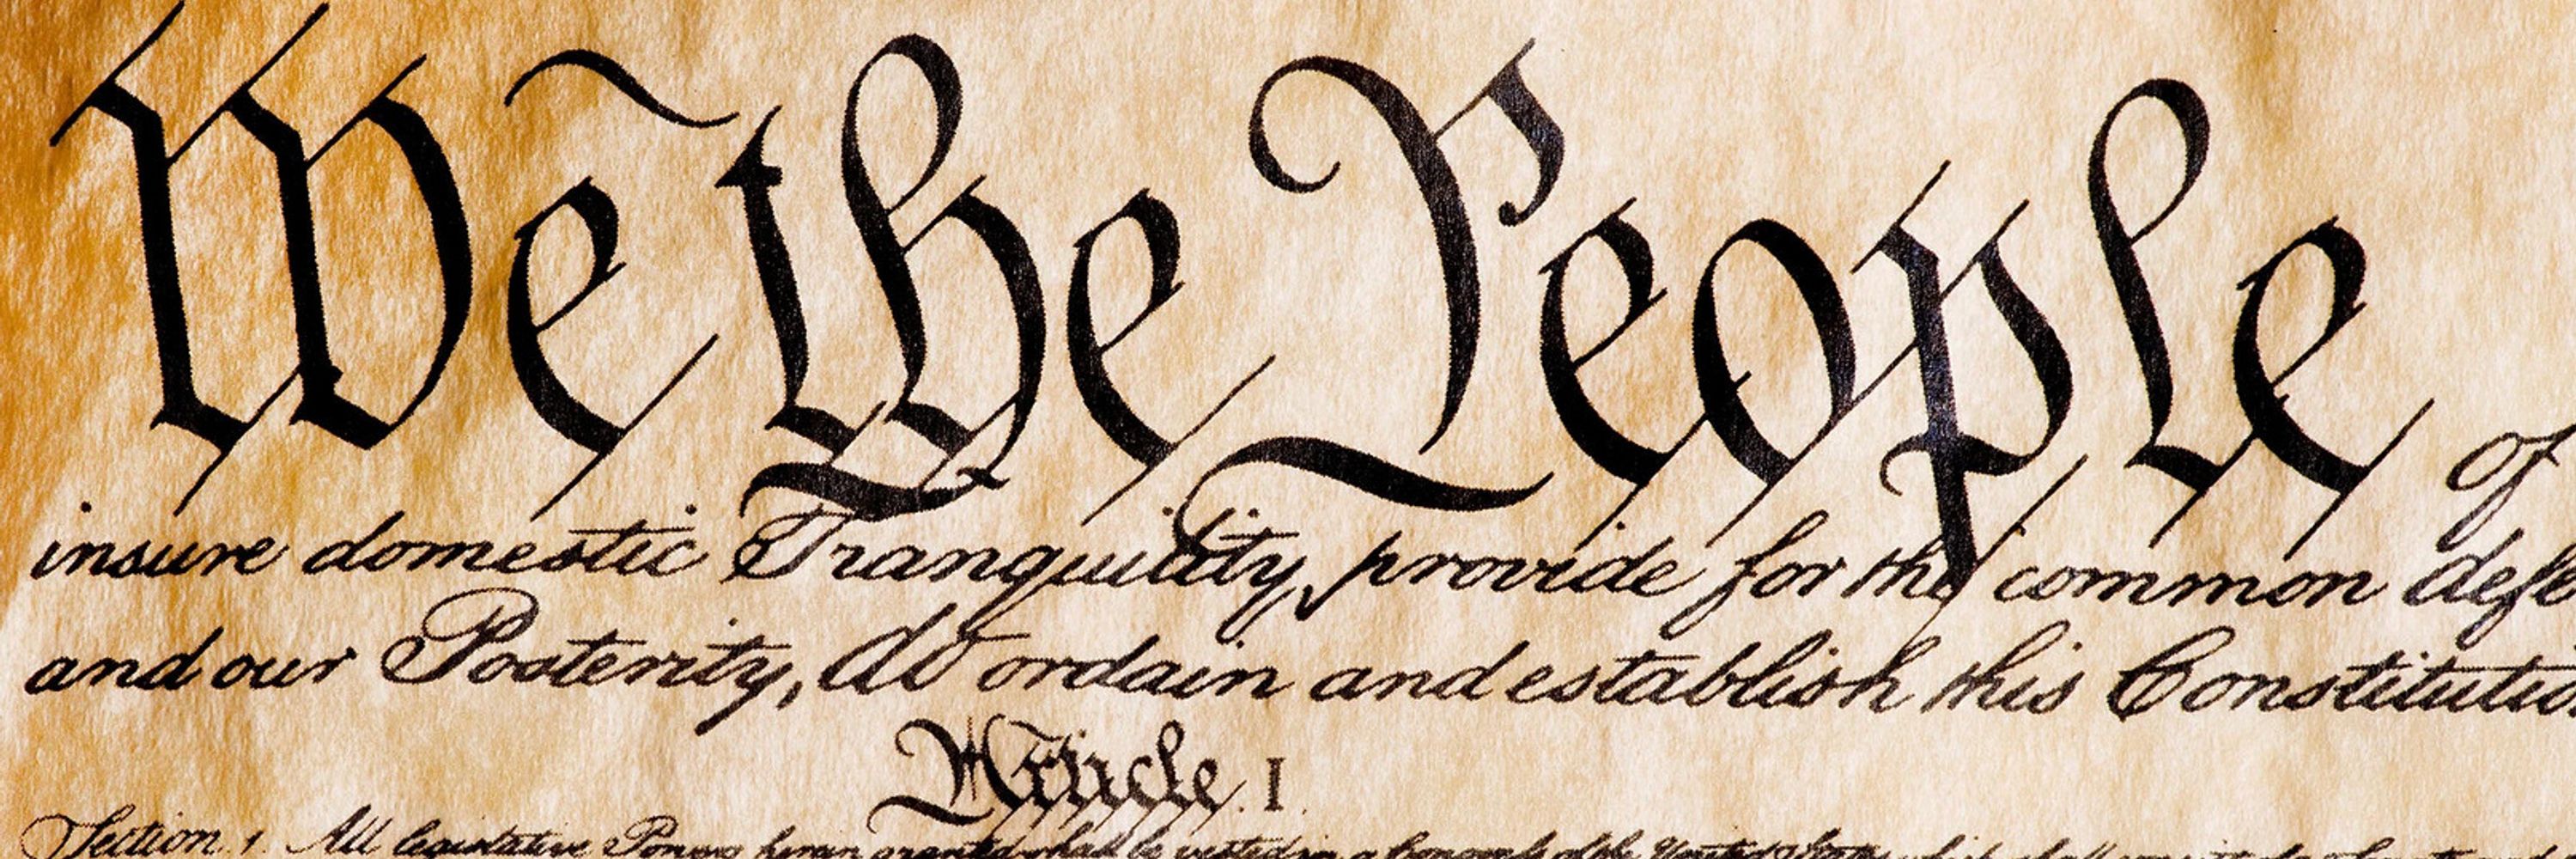 We the People of
insure domestic Tranquility, provide for the common defe
and our Posterity, do ordain and establish this Constitutio
Article. I.
Section. 1. All legislative Powers herein granted shall be vested in a Congress of the United States which shall consist of